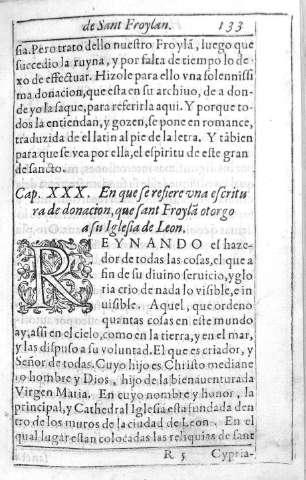 de Sant Froylan. 133
sia. Pero trato dello nuestro Froylã, luego que
succedio la ruyna, y por falta de tiempo lo de-
xo de effectuar. Hizole para ello vna solennissi
ma donacion, que esta en su archiuo, de a don-
de yo la saque, para referirla aqui. Y porque to
dos la entiendan, y gozen, se pone en romance,
traduzida de el latin al pie de la letra. Y tãbien
para que se vea por ella, el espiritu de este gran
de sancto.
Cap. XXX. En que se refiere vna escritu
ra de donacion, que sant Froylã otorgo
a su Iglesia de Leon.
REYNANDO el haze-
dor de todas las cosas, el que a
fin de su diuino seruicio, y glo
ria crio de nada lo visible, e in
uisible. Aquel, que ordeno
quantas cosas en este mundo
ay, assi en el cielo, como en la tierra, y en el mar,
y las dispuso a su voluntad. El que es criador, y
Señor de todas. Cuyo hijo es Christo mediane
ro hombre y Dios, hijo de la bienauenturada
Virgen Maria. En cuyo nombre y honor, la
principal, y Cathedral Iglesia esta fundada den
tro de los muros de la ciudad de Leon. En el
qual lugar estan colocadas las reliquias de sant
R 5 Cypria-